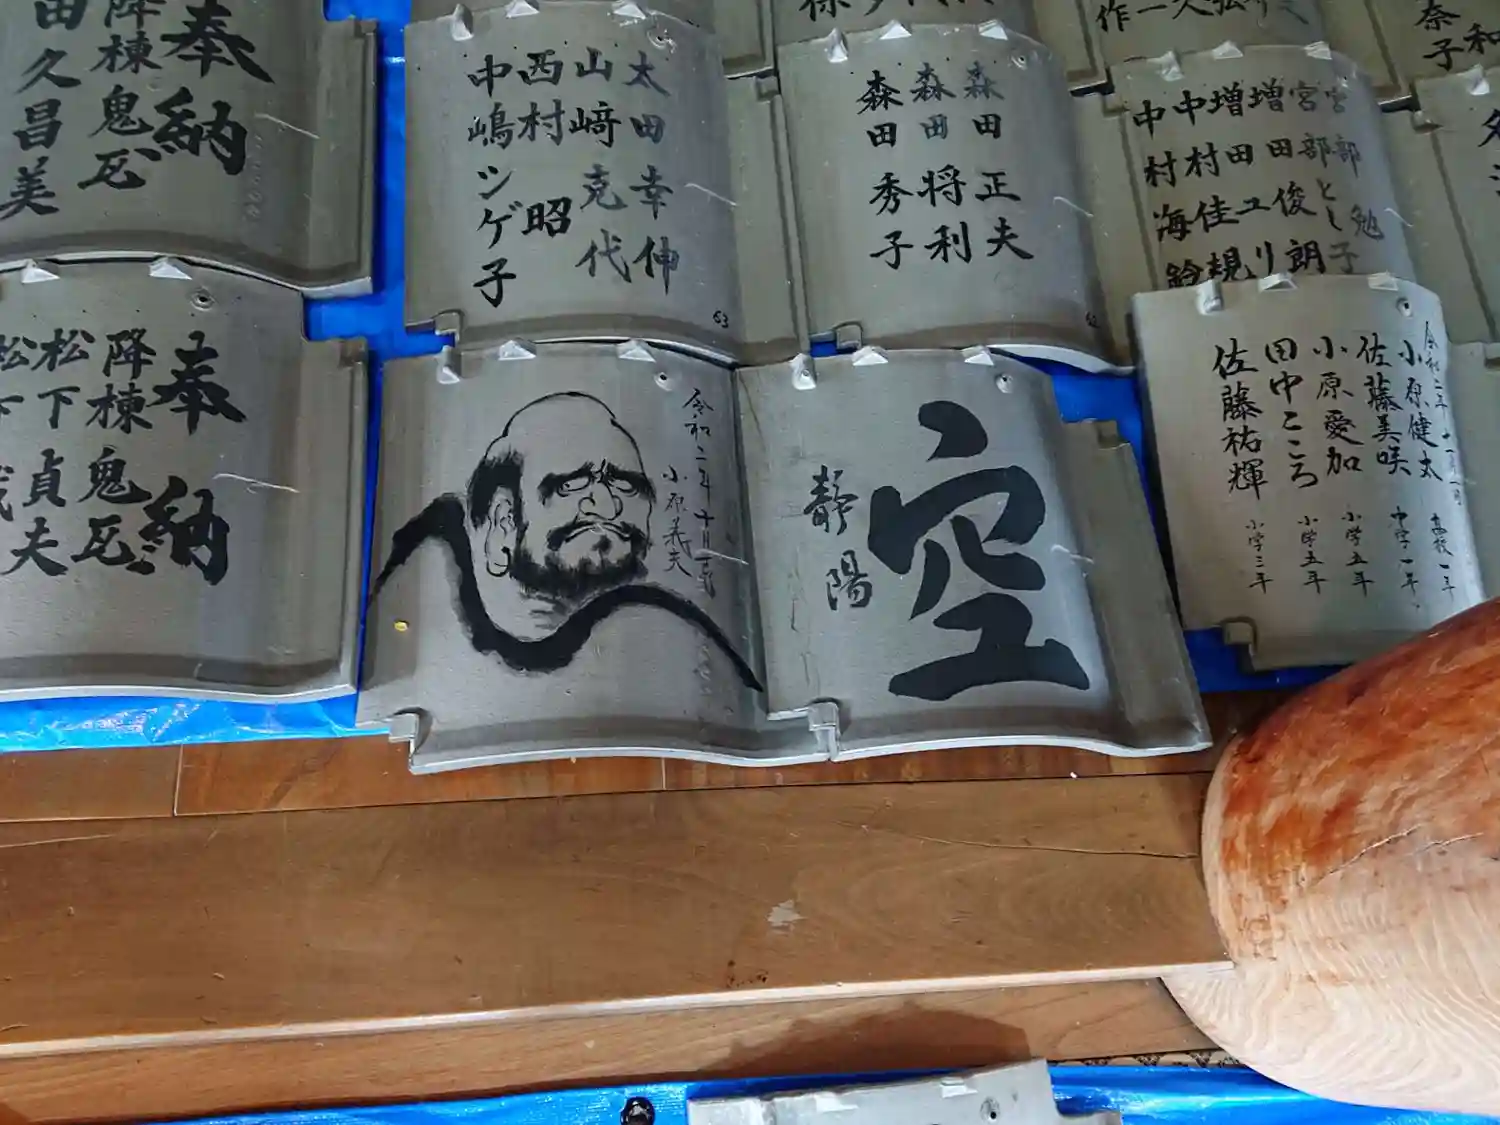 奉納
降棟鬼瓦
久昌美
太田幸伸
山﨑克代
西村昭
中嶋シゲ子
63
森田正夫
森田将利
森田秀子
宮部勉
宮部とし子
増田俊朗
増田ユリ
中村佳規
中村海鈴
作一
奈子
奉納
降棟鬼瓦
松下貞夫
松下
令和二年十月
小原義夫
空
静陽
令和二年十一月一日
小原健太 高校一年
佐藤美咲 中学一年
小原愛加 小学五年
田中こころ 小学五年
佐藤祐輝 小学三年